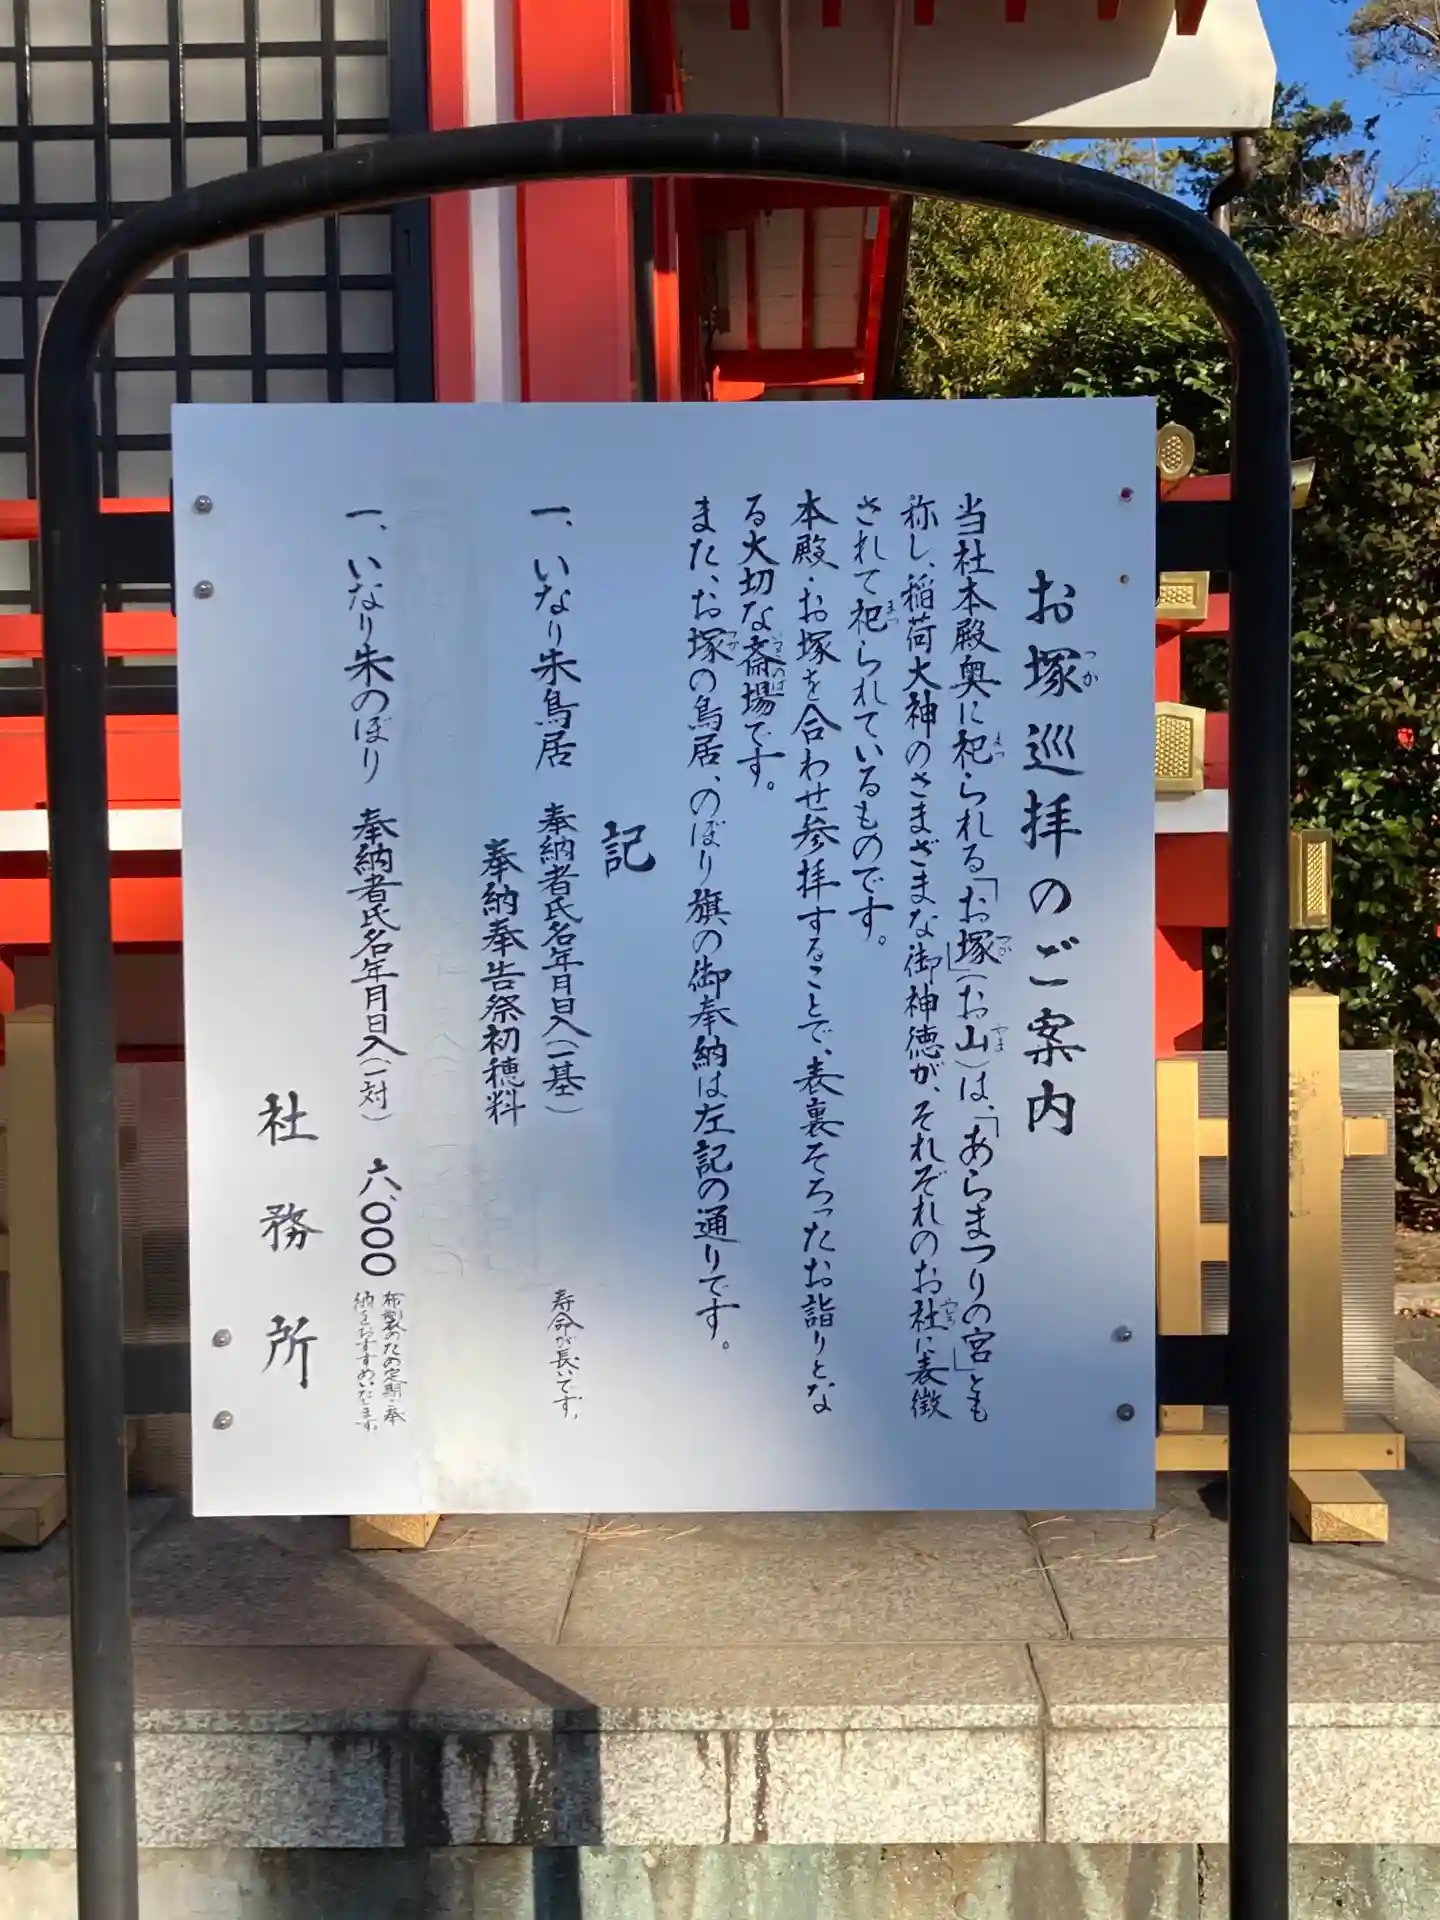 お塚巡拝のご案内
当社本殿奥に祀られる「お塚」(お山)は、「あらまつりの宮」とも
称し、稲荷大神のさまざまな御神徳が、それぞれのお社に表徴
されて祀られているものです。
本殿・お塚を合わせ参拝することで、表裏そろったお詣りとな
る大切な斎場です。
また、お塚の鳥居、のぼり旗の御奉納は左記の通りです。
記
一、いなり朱鳥居 奉納者氏名年月日入(一基) 寿命が長いです。
奉納奉告祭初穂料
一、いなり朱のぼり 奉納者氏名年月日入(一対) 六、〇〇〇 布製のため定期に奉
納をおすすめいたします。
社務所